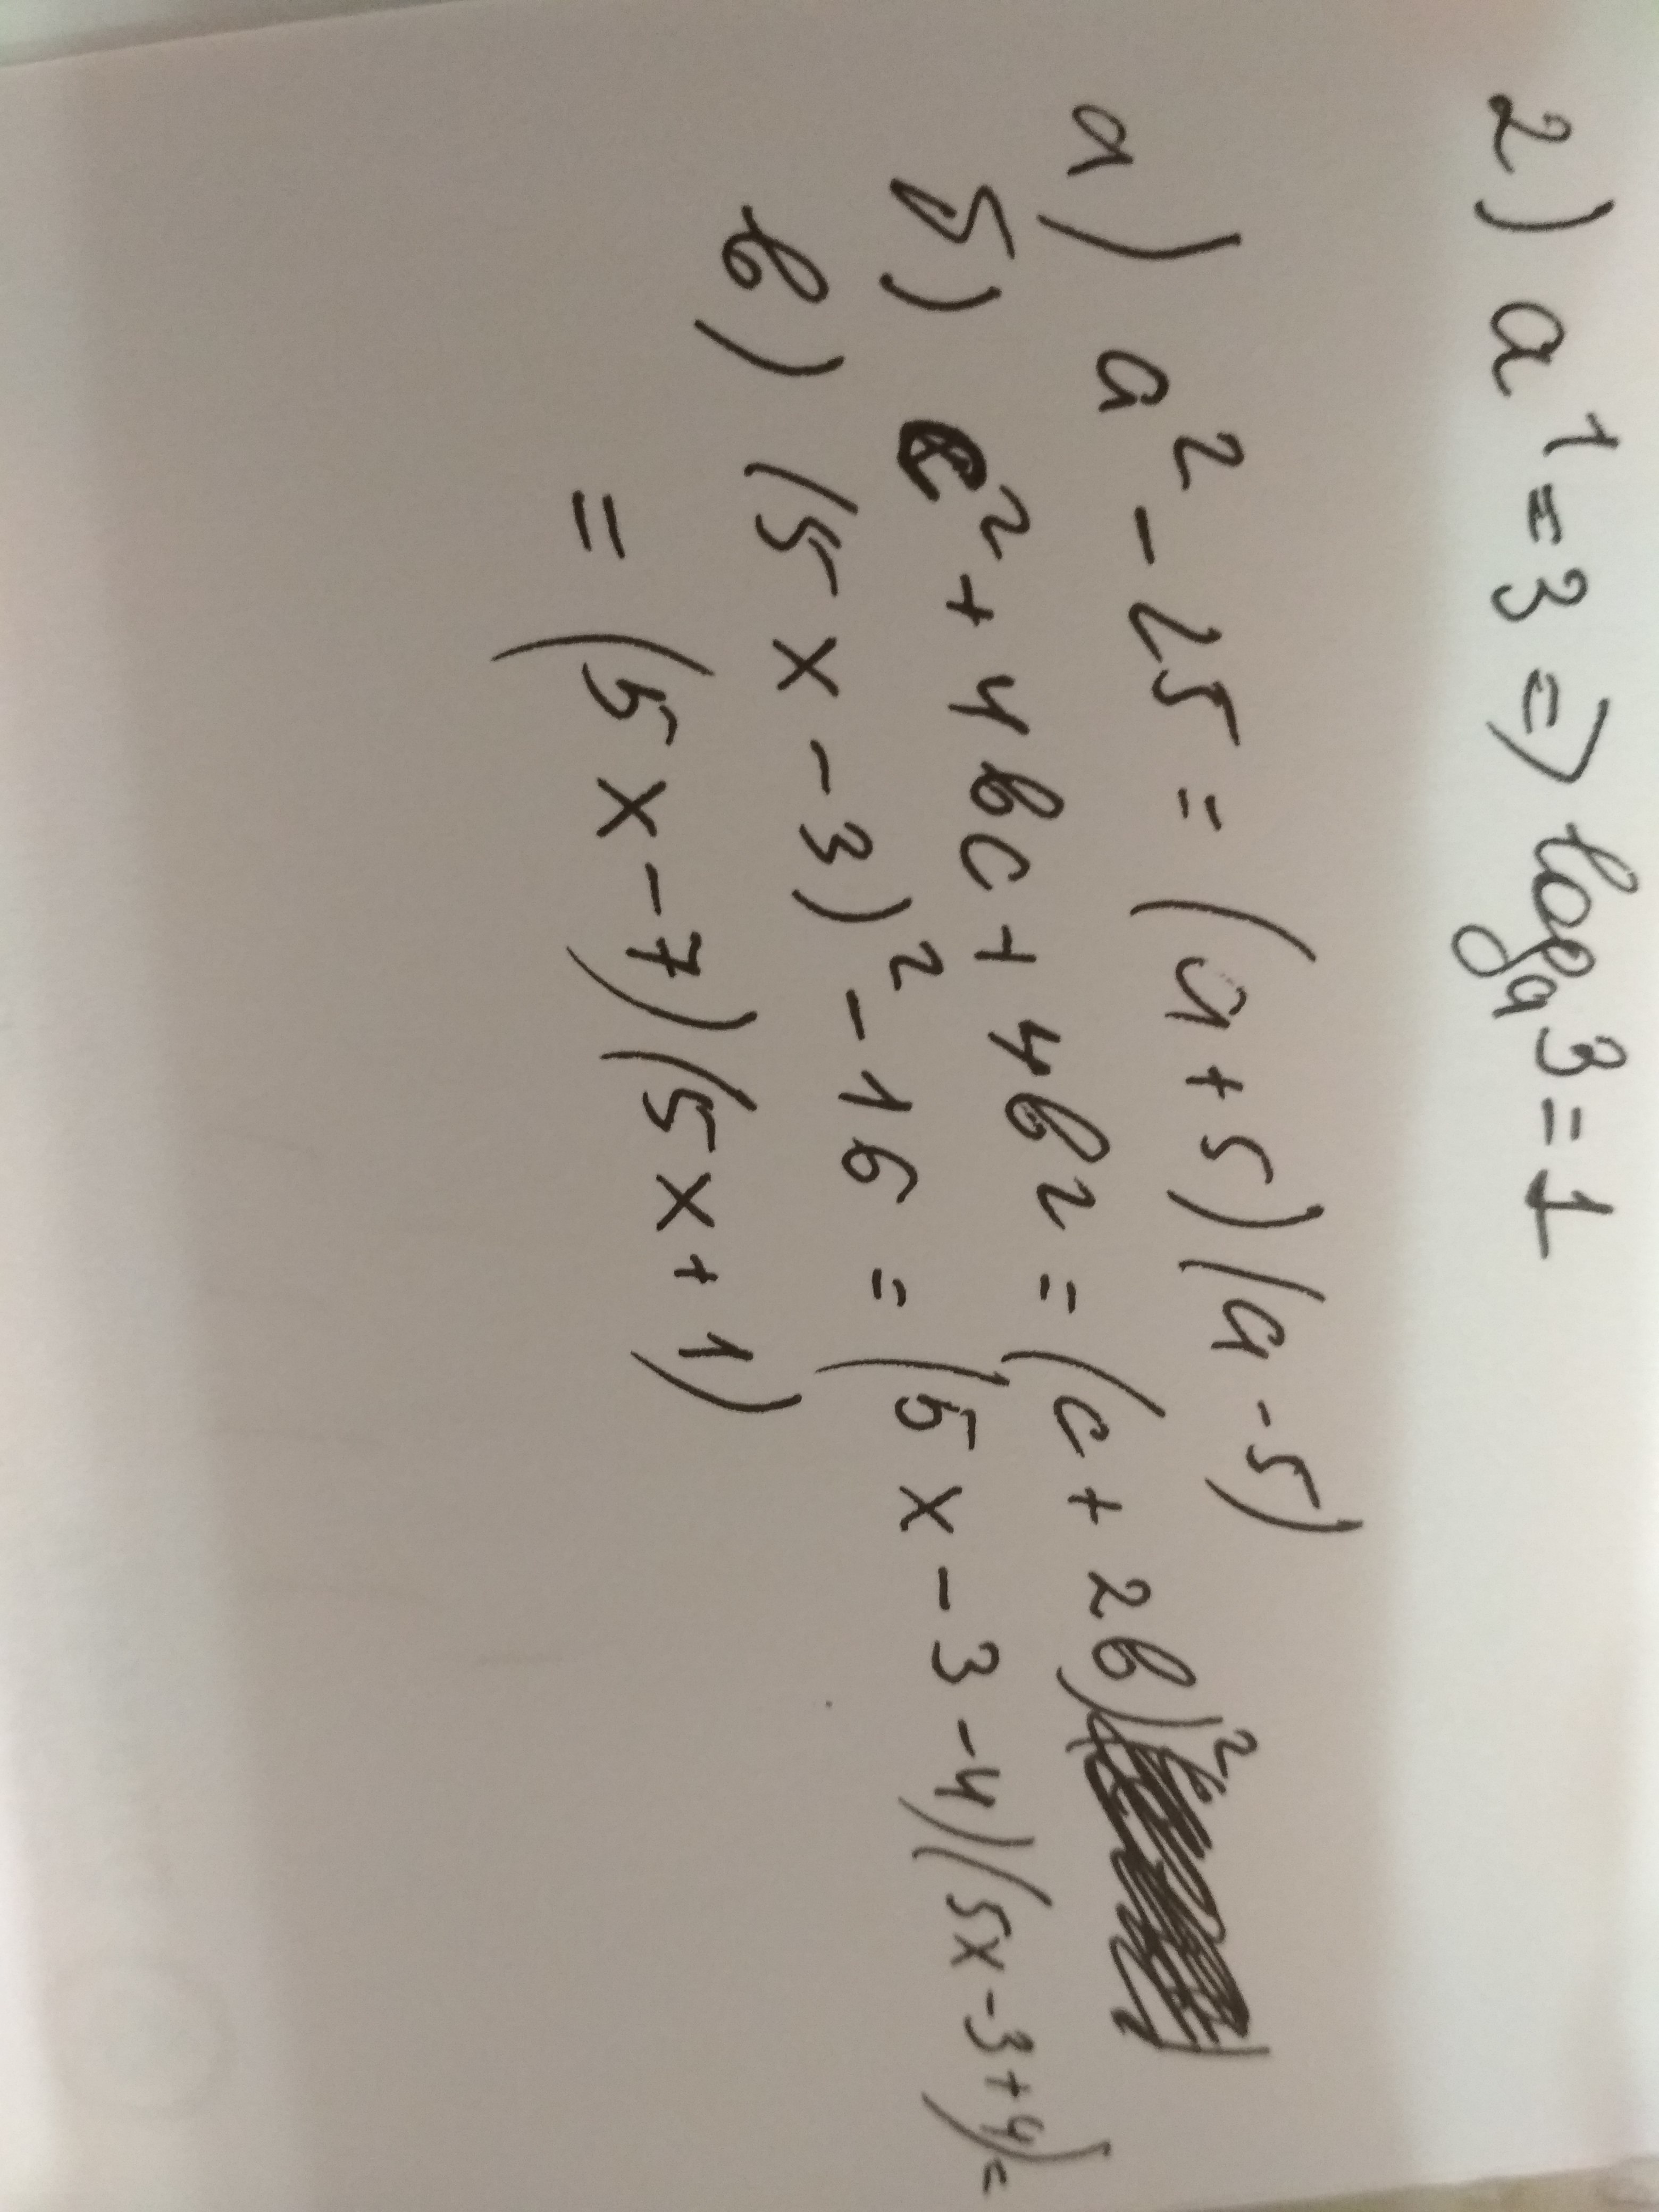 2) a¹ = 3 => logₐ3 = 1
а) a² - 25 = (a + 5)(a - 5)
б) c² + 4bc + 4b² = (c + 2b)²
в) (5x - 3)² - 16 = (5x - 3 - 4)(5x - 3 + 4) =
= (5x - 7)(5x + 1)